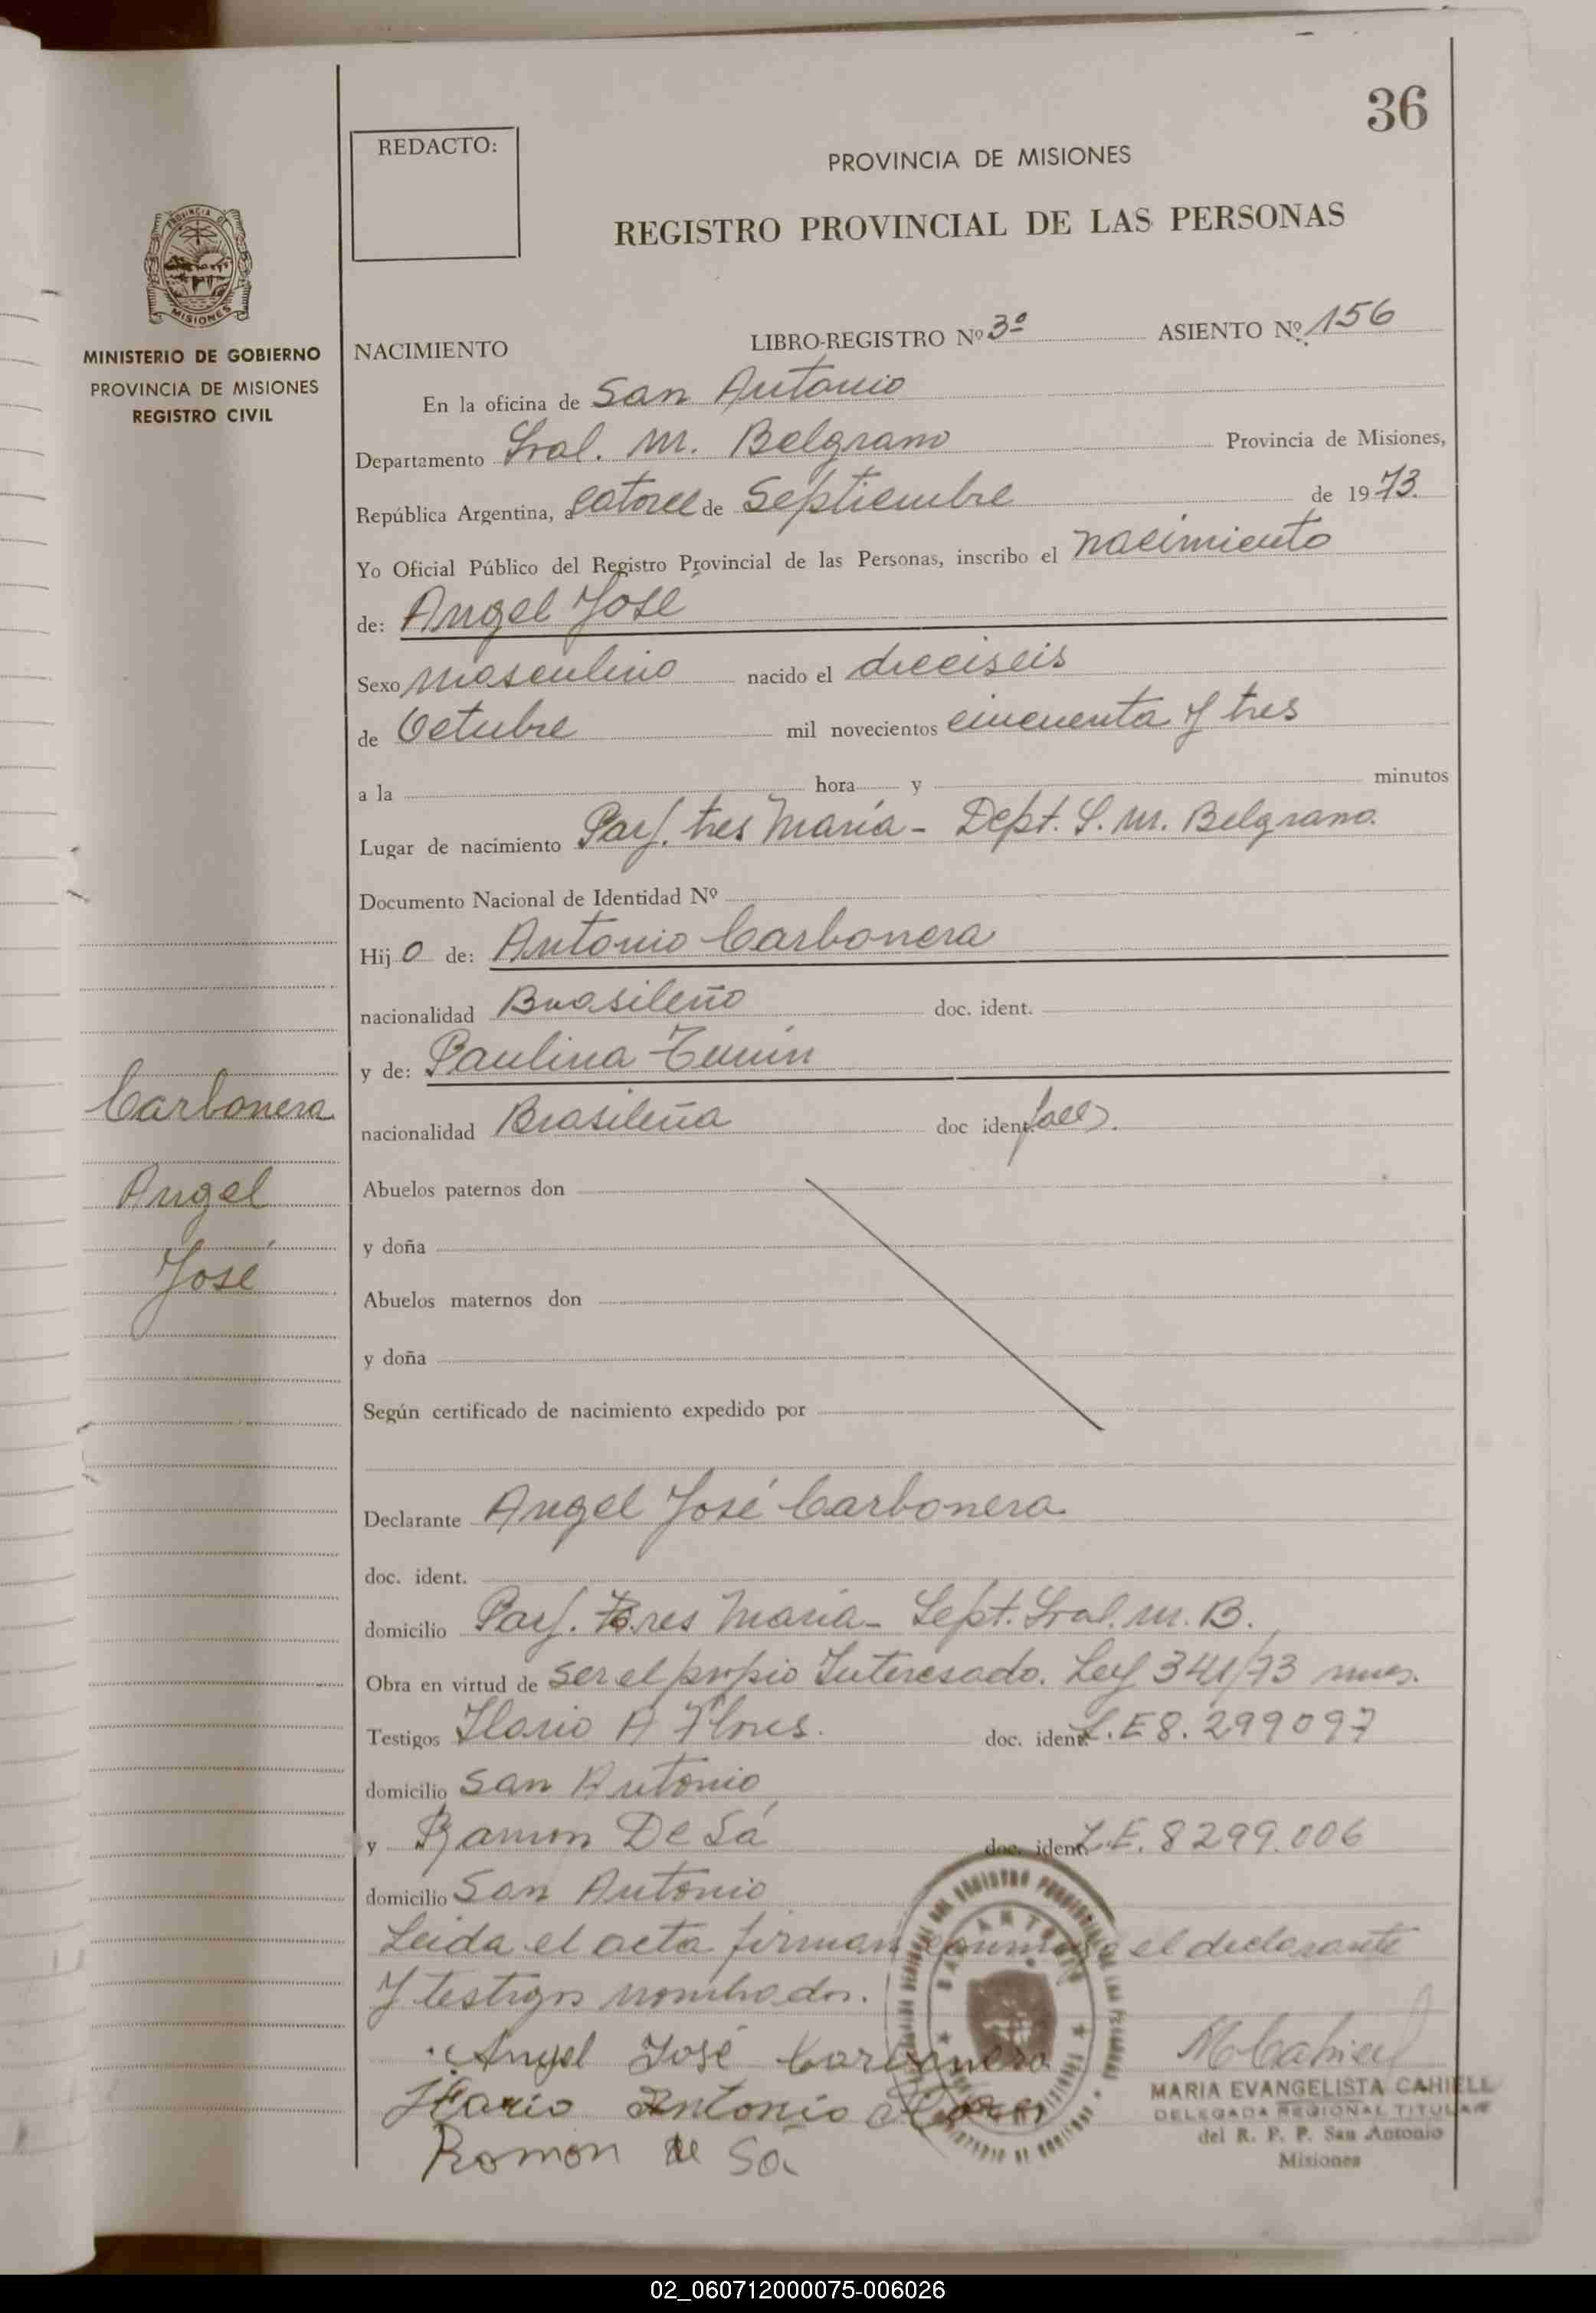 36
REDACTO:
PROVINCIA DE MISIONES
REGISTRO PROVINCIAL DE LAS PERSONAS
PROVINCIA DE
MISIONES
MINISTERIO DE GOBIERNO
PROVINCIA DE MISIONES
REGISTRO CIVIL
NACIMIENTO LIBRO-REGISTRO Nº 3º ASIENTO Nº 156
En la oficina de San Antonio
Departamento Gral. M. Belgrano Provincia de Misiones,
República Argentina, a catorce de Septiembre de 1973.
Yo Oficial Público del Registro Provincial de las Personas, inscribo el nacimiento
de: Angel José
Sexo masculino nacido el dieciseis
de Octubre mil novecientos cincuenta y tres
a la hora y minutos
Lugar de nacimiento Parj. tres María - Dept. G. M. Belgrano.
Documento Nacional de Identidad Nº
Hijo de: Antonio Carbonera
nacionalidad Brasileño doc. ident.
y de: Paulina
nacionalidad Brasileña doc ident.
Carbonera
Angel
José
Abuelos paternos don
y doña
Abuelos maternos don
y doña
Según certificado de nacimiento expedido por
Declarante Angel José Carbonera
doc. ident.
domicilio Parj. Tres María - Dept. Gral. M. B.
Obra en virtud de ser el propio Interesado. Ley 341/73 mnes.
Testigos Ilario A Flores. doc. ident. L.E 8.299097
domicilio San Antonio
y Ramon De Sá doc. ident. L.E. 8299.006
domicilio San Antonio
Leida el acta firman conmigo el declarante
y testigos nombrados.
Angel José Carbonera
Ilario Antonio Flores
Ramon de Sa
MCahiell
MARIA EVANGELISTA CAHIELL
DELEGADA REGIONAL TITULAR
del R. P. P. San Antonio
Misiones
02_060712000075-006026